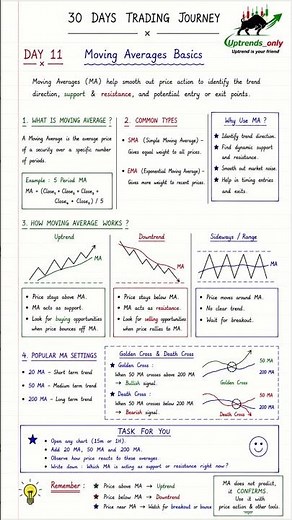 30 DAYS TRADING JOURNEY
Uptrends_only
Uptrend is your friend
DAY 11
Moving Averages Basics
Moving Averages (MA) help smooth out price action to identify the trend
direction, support & resistance, and potential entry or exit points.
1. WHAT IS MOVING AVERAGE ?
A Moving Average is the average price
of a security over a specific number
of periods.
Example : 5 Period MA
MA = (Close₁ + Close₂ + Close₃ +
Close₄ + Close₅) / 5
2. COMMON TYPES
• SMA (Simple Moving Average) -
Gives equal weight to all prices.
• EMA (Exponential Moving Average) -
Gives more weight to recent prices.
Why Use MA ?
★ Identify trend direction.
★ Find dynamic support
and resistance.
★ Smooth out market noise.
★ Help in timing entries
and exits.
3. HOW MOVING AVERAGE WORKS ?
Uptrend
MA
• Price stays above MA.
• MA acts as support.
• Look for buying opportunities
when price bounces off MA.
Downtrend
MA
• Price stays below MA.
• MA acts as resistance.
• Look for selling opportunities
when price rallies to MA.
Sideways / Range
MA
• Price moves around MA.
• No clear trend.
• Wait for breakout.
4. POPULAR MA SETTINGS
• 20 MA - Short term trend
• 50 MA - Medium term trend
• 200 MA - Long term trend
Golden Cross & Death Cross
★ Golden Cross :
When 50 MA crosses above 200 MA
→ Bullish signal.
★ Death Cross :
When 50 MA crosses below 200 MA
→ Bearish signal.
50 MA
200 MA
Golden Cross
200 MA
50 MA
Death Cross
TASK FOR YOU
• Open any chart (15m or 1H).
• Add 20 MA, 50 MA and 200 MA.
• Observe how price reacts to these averages.
• Write down : Which MA is acting as support or resistance right now?
Remember :
★ Price above MA → Uptrend
★ Price below MA → Downtrend
★ Price near MA → Watch for breakout or bounce
MA does not predict,
it CONFIRMS.
Use it with
price action & other tools.